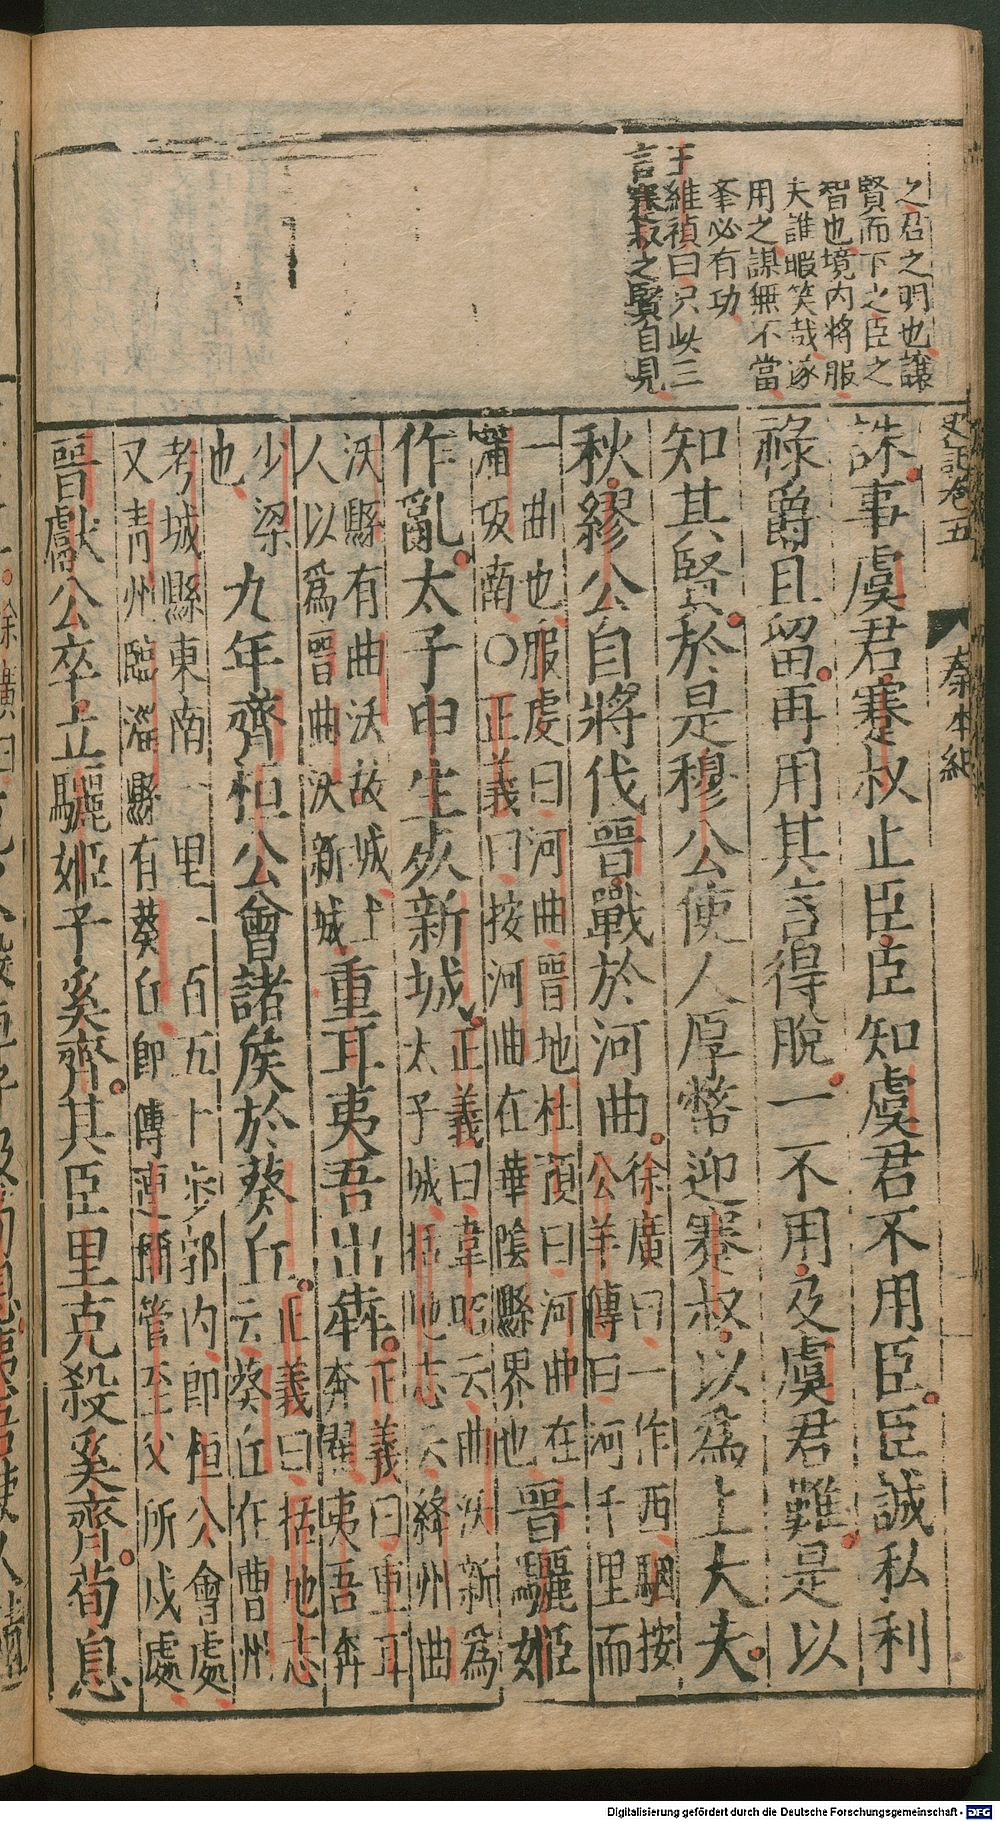 之君之明也讓
賢而下之臣之
智也境內將服
夫誰暇笑哉遂
用之謀無不當
峯必有功
王維禎曰只此三
言蹇叔之賢自見
史記卷五
秦本紀
誅事虞君蹇叔止臣臣知虞君不用臣臣誠私利
祿爵且留再用其言得脫一不用及虞君難是以
知其賢於是穆公使人厚幣迎蹇叔以爲上大夫
秋繆公自將伐晉戰於河曲
徐廣曰一作西駰按
公羊傳曰河千里而
一曲也服虔曰河曲晉地杜預曰河曲在
蒲坂南○正義曰按河曲在華陰縣界也
晉驪姬
作亂太子申生死新城
正義曰韋昭云曲沃新爲
太子城括地志云絳州曲
沃縣有曲沃故城土
人以爲晉曲沃新城
重耳夷吾出犇
正義曰重耳
奔翟夷吾奔
少梁
也
九年齊桓公會諸侯於葵丘
正義曰括地志
云葵丘在曹州
考城縣東南 里 百五 十步郭内即桓公會處
又青州臨淄縣有葵丘即傳連稱管至父所戍處
晉獻公卒立驪姬子奚齊其臣里克殺奚齊荀息
Digitalisierung gefördert durch die Deutsche Forschungsgemeinschaft - DFG